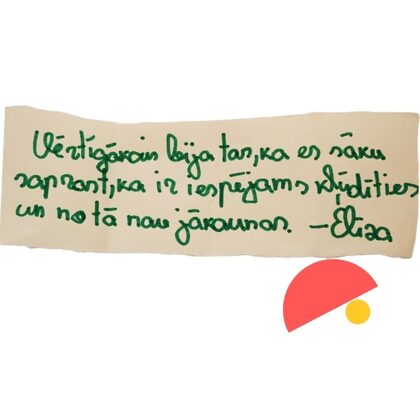 Vērtīgākais bija tas, ka es sāku
saprast, ka ir iespējams kļūdīties
un no tā nav jākaunas. –Elīza